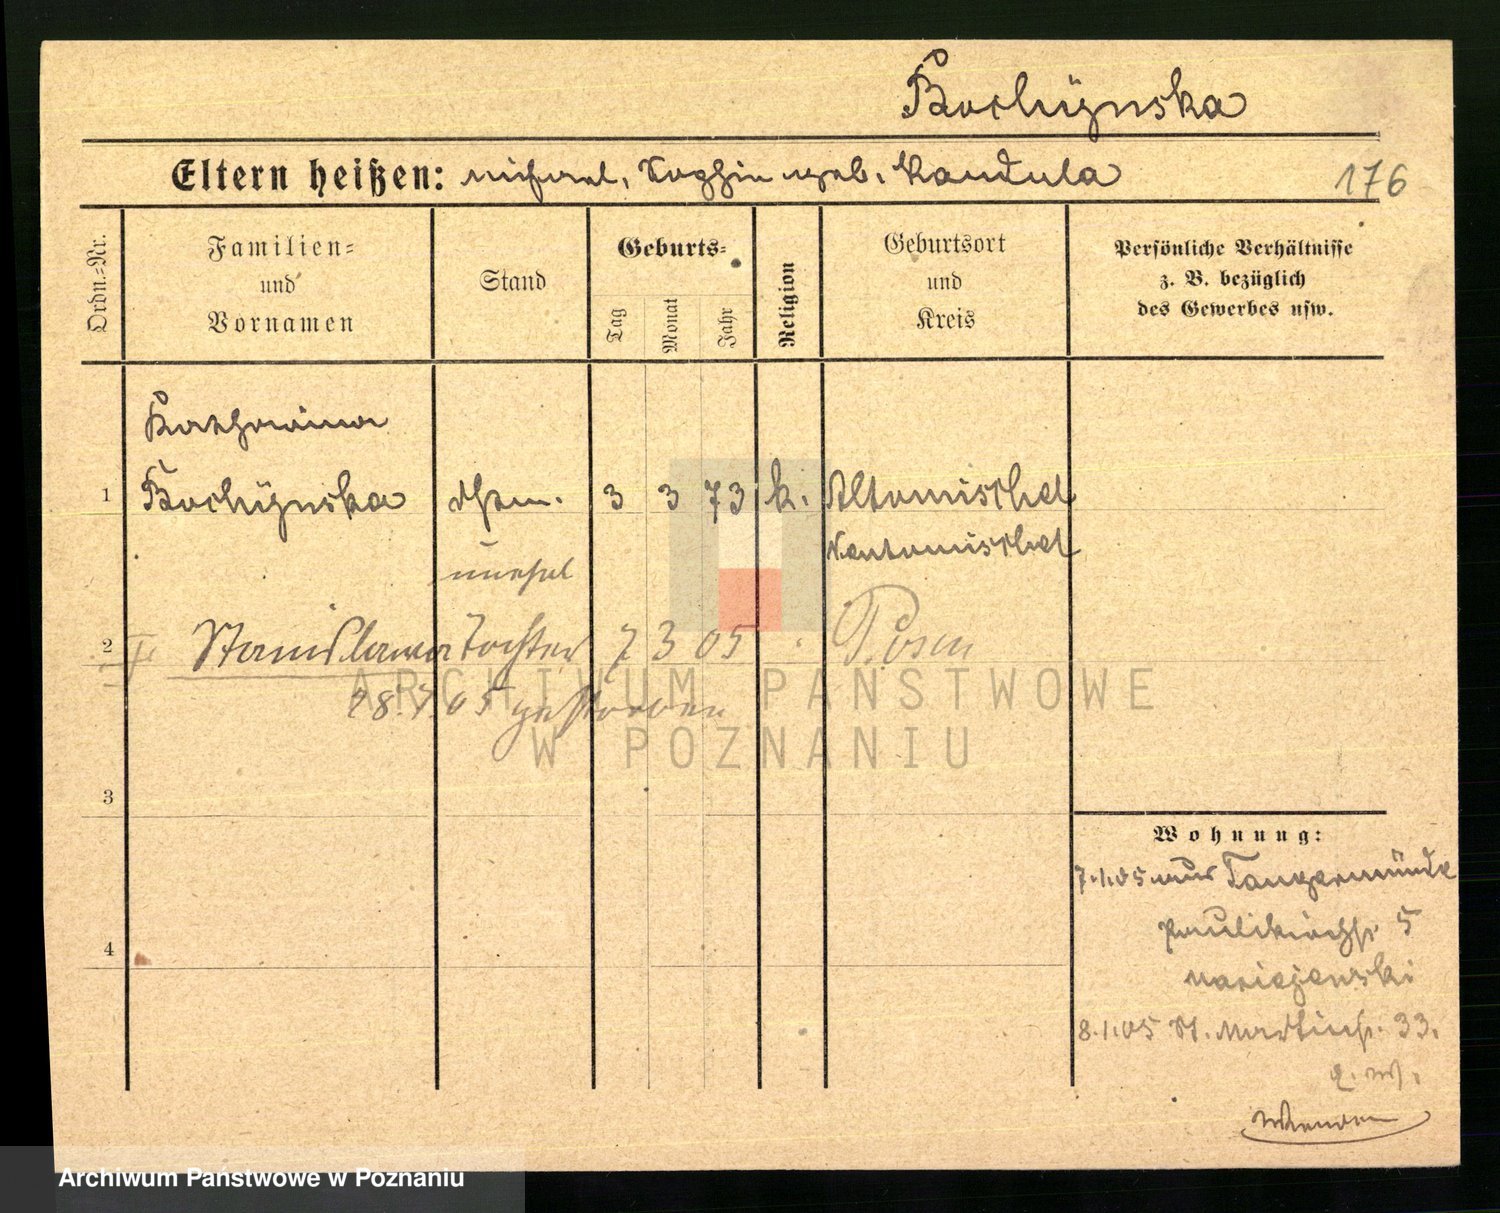 Bochÿnska
Eltern heißen: Michael, Sophie geb. Kandula
176
Ordn.=Nr.
Familien=
und
Vornamen
Stand
Geburts=
Tag
Monat
Jahr
Religion
Geburtsort
und
Kreis
Persönliche Verhältnisse
z. B. bezüglich
des Gewerbes usw.
Katharina
1 Bochÿnska 3 3 73 k. Altomischel
Neutomischel
unehel
2 Stanislawa Tochter 7 3 05 Posen
28.7.05 gestorben
3
Wohnung:
7.1.05 aus Tangermünde
Paulikirchst. 5
4
8.1.05 St. Martinst. 33.
ARCHIWUM PAŃSTWOWE
W POZNANIU
Archiwum Państwowe w Poznaniu